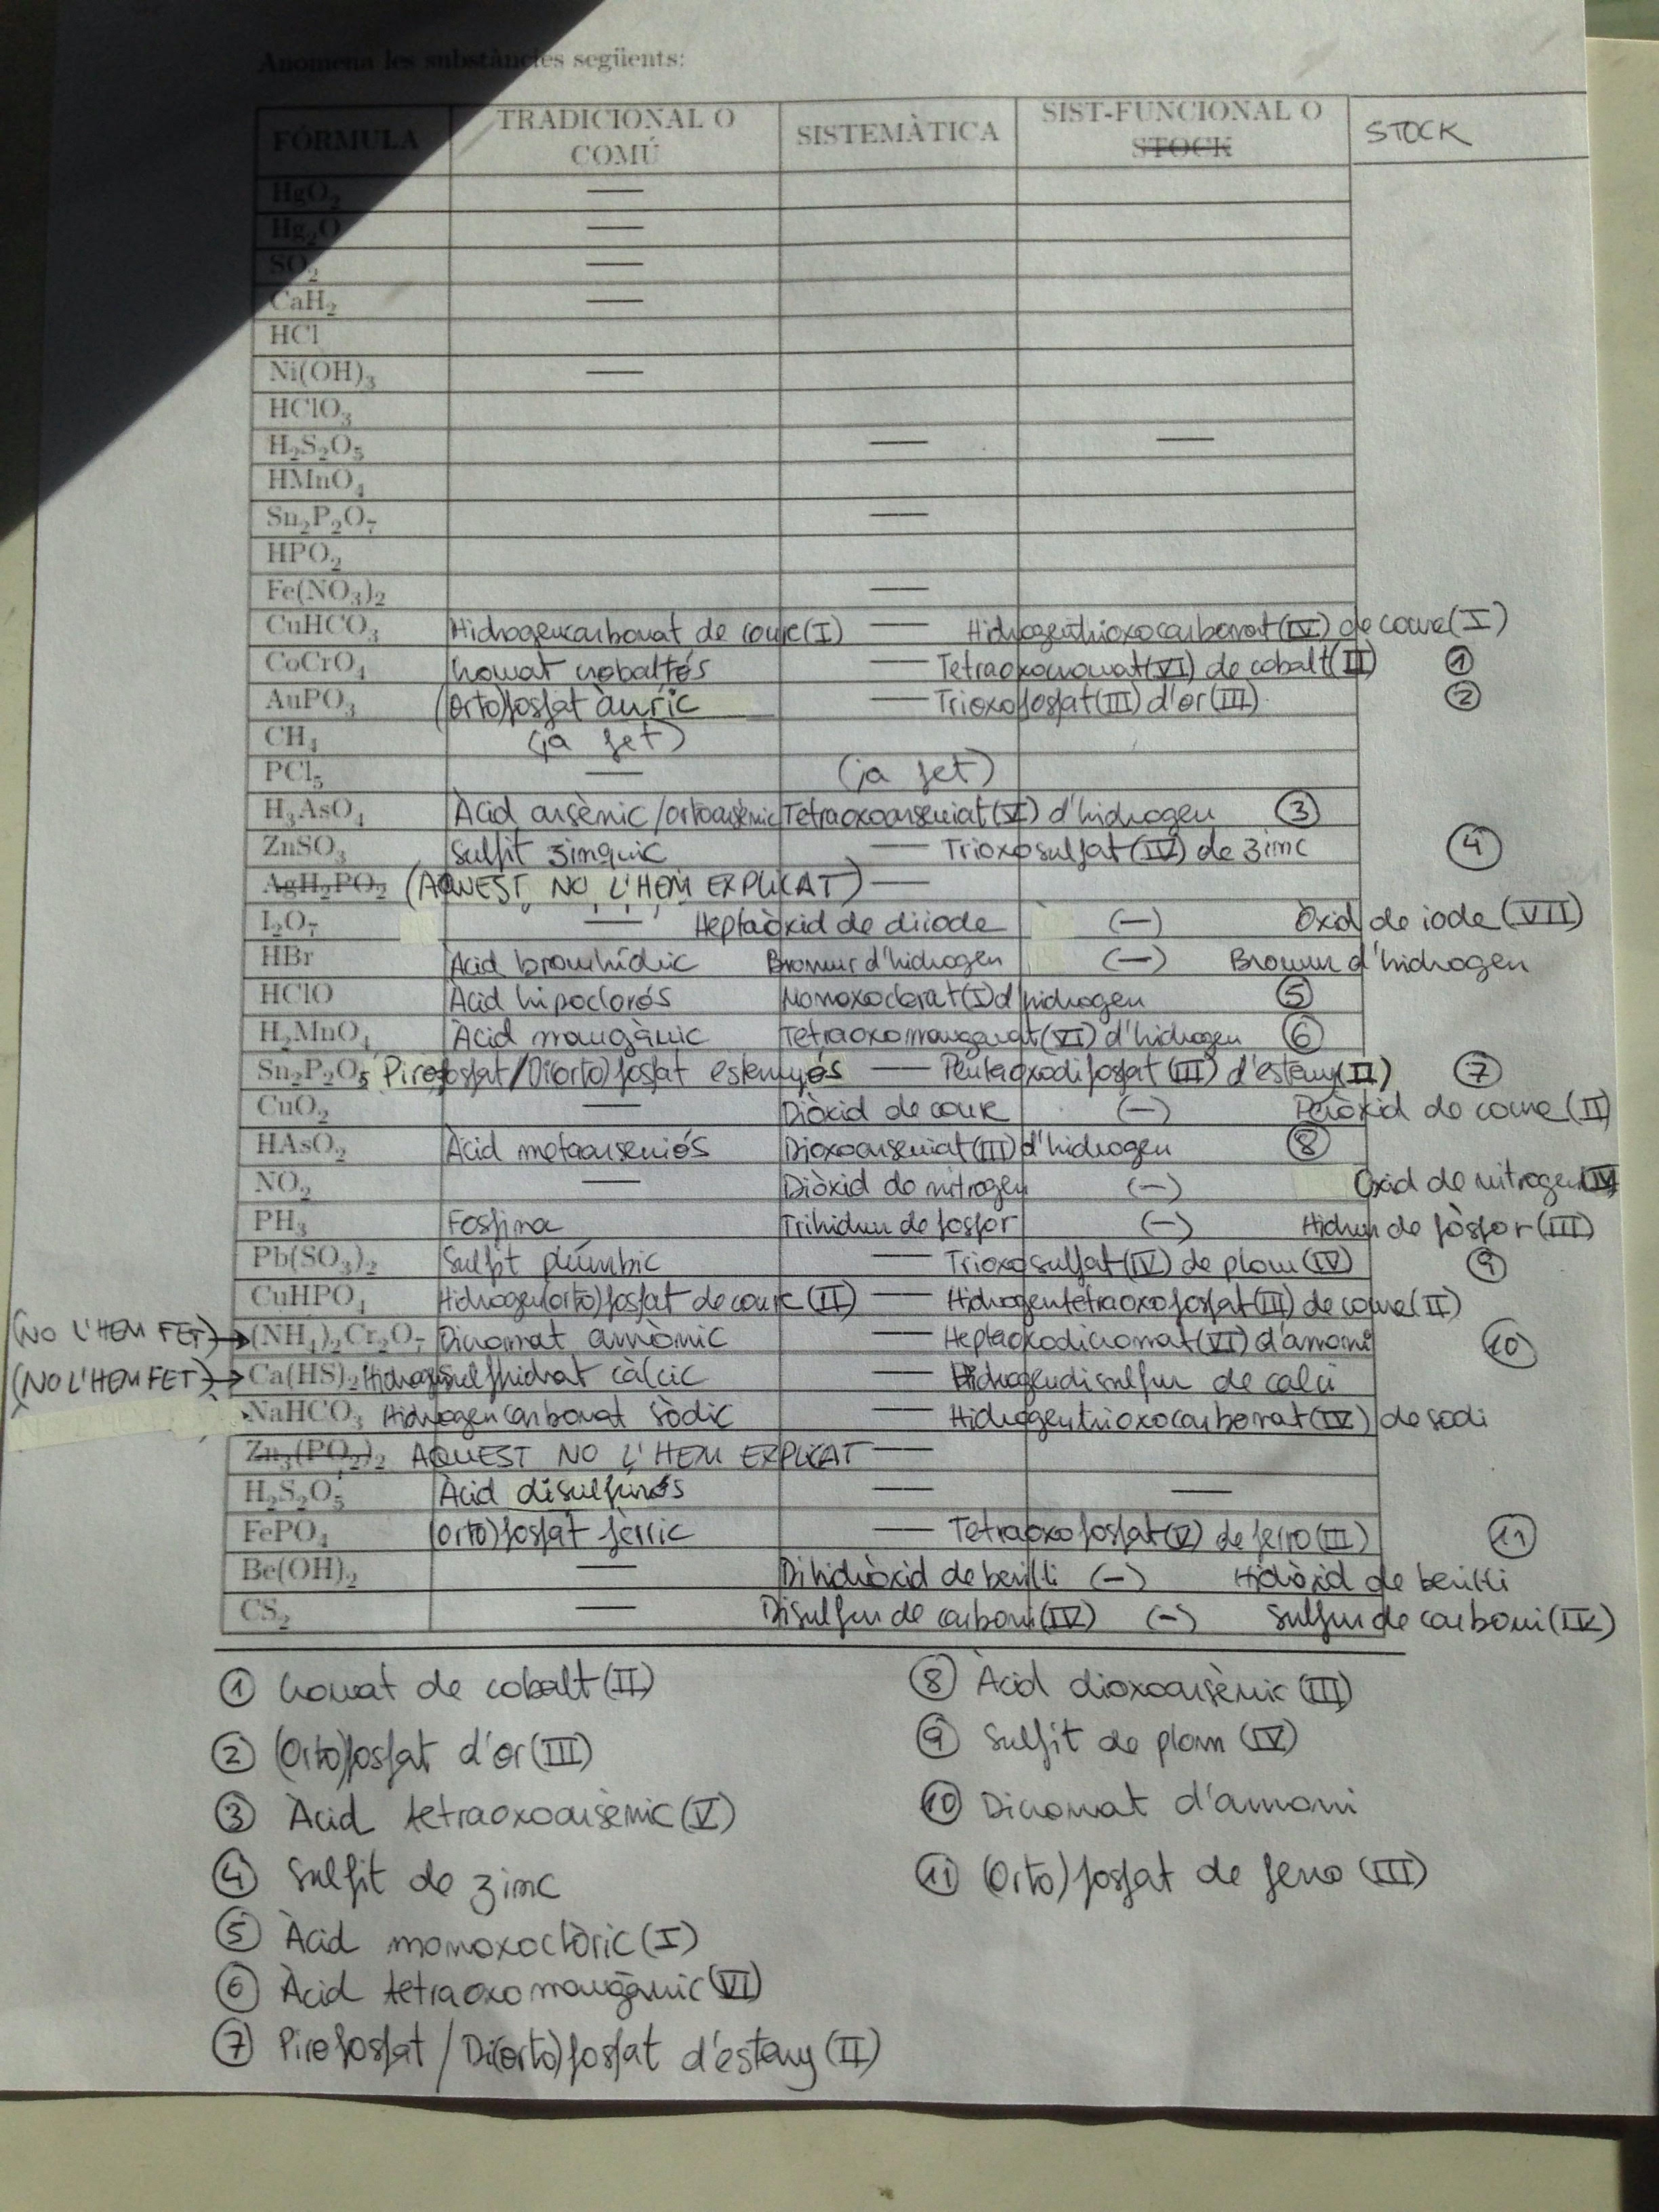 Anomena les substàncies següents:
FÓRMULA TRADICIONAL O COMÚ SISTEMÀTICA SIST-FUNCIONAL O STOCK STOCK
HgO₂ —
Hg₂O —
SO₂ —
CaH₂ —
HCl
Ni(OH)₃ —
HClO₃
H₂S₂O₅ — —
HMnO₄
Sn₂P₂O₇ —
HPO₂
Fe(NO₃)₂ —
CuHCO₃ Hidrogencarbonat de coure(I) — Hidrogentrioxocarbonat(IV) de coure(I)
CoCrO₄ Cromat cobaltós — Tetraoxocromat(VI) de cobalt(II) ①
AuPO₃ (orto)fosfat àuric — Trioxofosfat(III) d'or(III) ②
CH₄ (ja fet)
PCl₅ — (ja fet)
H₃AsO₄ Àcid arsènic/ortoarsènic Tetraoxoarseniat(V) d'hidrogen ③
ZnSO₃ Sulfit zínquic — Trioxosulfat(IV) de zinc ④
AgH₂PO₂ (AQUEST NO L'HEM EXPLICAT) —
I₂O₇ — Heptaòxid de diiode (—) Òxid de iode(VII)
HBr Àcid bromhídric Bromur d'hidrogen (—) Bromur d'hidrogen
HClO Àcid hipoclorós Monoxoclorat(I) d'hidrogen ⑤
H₂MnO₄ Àcid mangànic Tetraoxomanganat(VI) d'hidrogen ⑥
Sn₂P₂O₅ Pirofosfat/Di(orto)fosfat estannyós — Pentaoxodifosfat(III) d'estany(II) ⑦
CuO₂ — Diòxid de coure (—) Peròxid de coure(II)
HAsO₂ Àcid metaarseniós Dioxoarseniat(III) d'hidrogen ⑧
NO₂ — Diòxid de nitrogen (—) Òxid de nitrogen(IV)
PH₃ Fosfina Trihidrur de fosfor (—) Hidrur de fòsfor(III)
Pb(SO₃)₂ Sulfit plúmbic — Trioxosulfat(IV) de plom(IV) ⑨
CuHPO₄ Hidrogen(orto)fosfat de coure(II) — Hidrogentetraoxofosfat(III) de coure(II)
(NO L'HEM FET) → (NH₄)₂Cr₂O₇ Dicromat amònic Heptaoxodicromat(VI) d'amoni ⑩
(NO L'HEM FET) → Ca(HS)₂ Hidrogensulfhidrat càlcic — Hidrogendisulfur de calci
NaHCO₃ Hidrogencarbonat sòdic — Hidrogentrioxocarbonat(IV) de sodi
Zn₃(PO₂)₂ AQUEST NO L'HEM EXPLICAT —
H₂S₂O₅ Àcid disulfurós — —
FePO₄ (orto)fosfat fèrric — Tetraoxofosfat(V) de ferro(III) ⑪
Be(OH)₂ — Dihidròxid de beril·li (—) Hidròxid de beril·li
CS₂ — Disulfur de carboni(IV) (—) Sulfur de carboni(IV)
① Cromat de cobalt(II)
② (Orto)fosfat d'or(III)
③ Àcid tetraoxoarsènic(V)
④ Sulfit de zinc
⑤ Àcid monoxoclòric(I)
⑥ Àcid tetraoxomangànic(VI)
⑦ Pirofosfat/Di(orto)fosfat d'estany(II)
⑧ Àcid dioxoarsènic(III)
⑨ Sulfit de plom(IV)
⑩ Dicromat d'amoni
⑪ (Orto)fosfat de ferro(III)